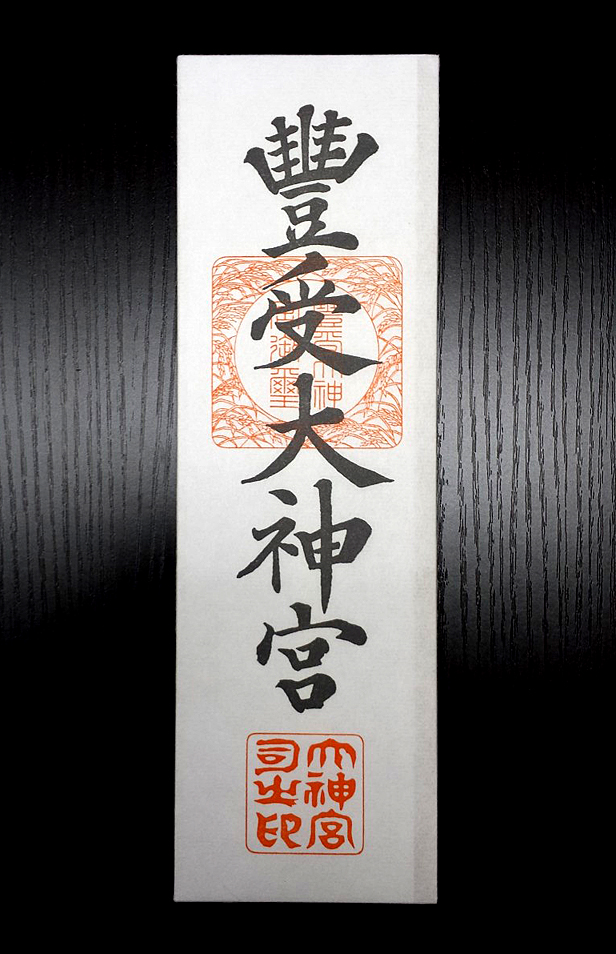 豐受大神宮
大神宮
司之印